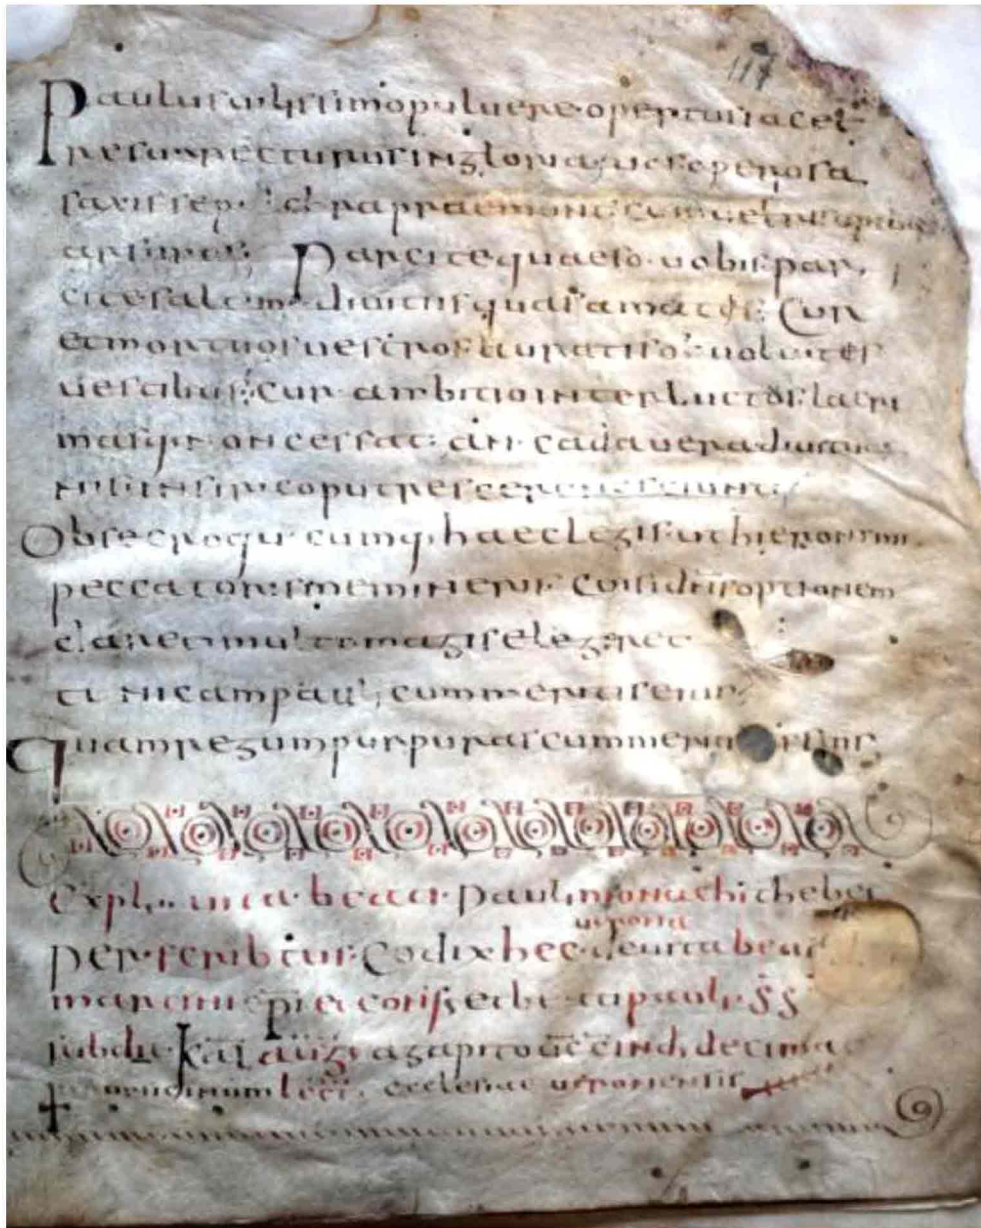 117
Paulus uilissimo puluere opertus iacet
resurrecturus in gloria uos operosa
saxis sep cra praemont cum uestris opibus
arsuros Parcite quaeso uobis par
cite saltem diuitiis quas amatis Cur
et mortuos uestros auratis obuoluites
uestibus Cur ambitio inter luctos lacri
masq non cessat an cadauera diuitum
nisi in sirico putrescere nesciunt
Obsecro qui cumq haec legis ut hieronimi
peccatoris memineris cui si dns optionem
daret multo magis elegeret
tunicam pauli cum meritis eius
quam regum purpuras cum meri
expl uita beati pauli monachi thebei
uerona
perscribtus codix hec de uita beati
martini epi et conf et be ti pauli ss
sub die kal aug agapito uc c ind decima
+ per ursicinum lect ecclesiae ueronensis